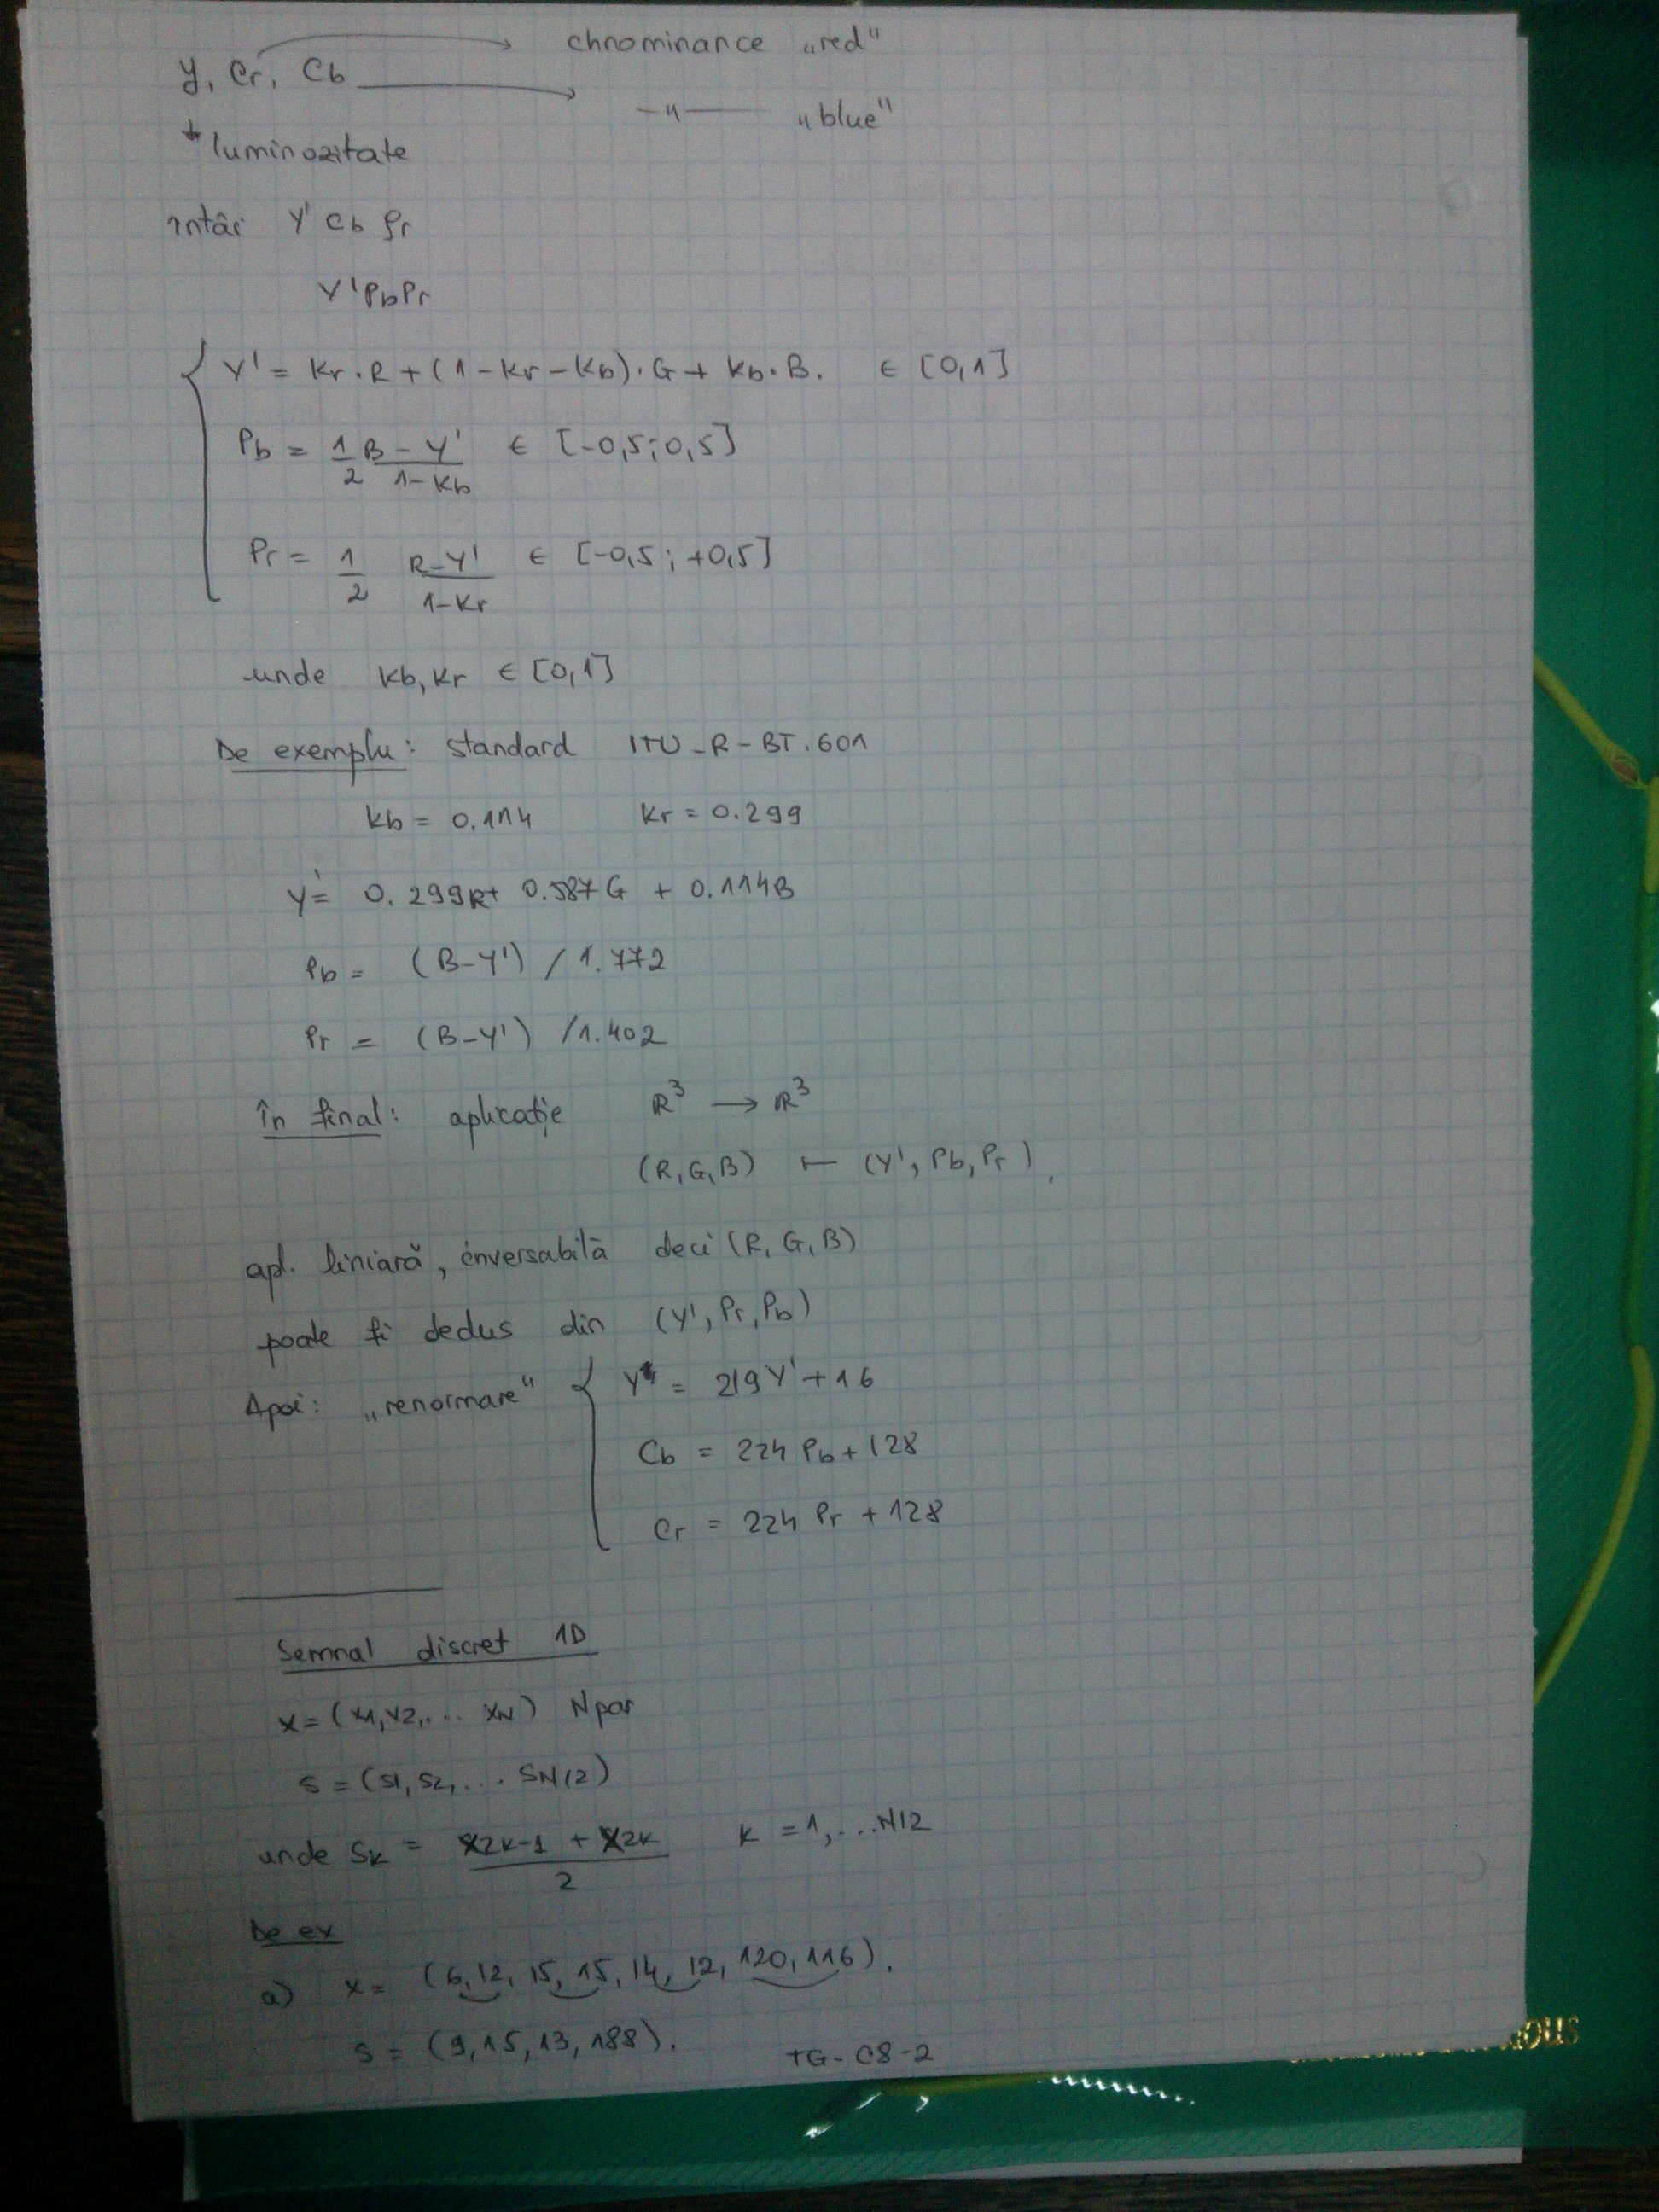 Y, Cr, Cb → chrominance „red"
→ —"— „blue"
* luminozitate
întâi Y' Cb Pr
Y'PbPr
Y' = Kr·R + (1-Kr-Kb)·G + Kb·B. ∈ [0,1]
Pb = 1/2 (B-Y')/(1-Kb) ∈ [-0,5;0,5]
Pr = 1/2 (R-Y')/(1-Kr) ∈ [-0,5;+0,5]
unde Kb, Kr ∈ [0,1]
De exemplu: standard ITU-R-BT.601
Kb = 0.114 Kr = 0.299
Y' = 0.299R+ 0.587G + 0.114B
Pb = (B-Y') / 1.772
Pr = (B-Y') /1.402
În final: aplicație R³ → R³
(R,G,B) ⊢ (Y', Pb, Pr).
apl. liniară, inversabilă deci (R, G, B)
poate fi dedus din (Y', Pr, Pb)
Apoi: „renormare" { Y = 219Y'+16
Cb = 224 Pb+128
Cr = 224 Pr +128
Semnal discret 1D
x = (x1, x2, ... xN) N par
s = (s1, s2, ... sN/2)
unde sk = (x2k-1 + x2k)/2 k = 1, ...N/2
De ex
a) x = (6, 12, 15, 15, 14, 12, 120, 116).
s = (9, 15, 13, 188).
TG-C8-2